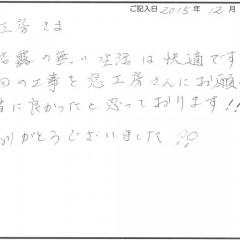 ご記入日 2015年 12月
工房 さま
結露の無い 生活は快適です
回の工事を窓工房さんにお願
に良かったと思っております!!
りがとうございました !!